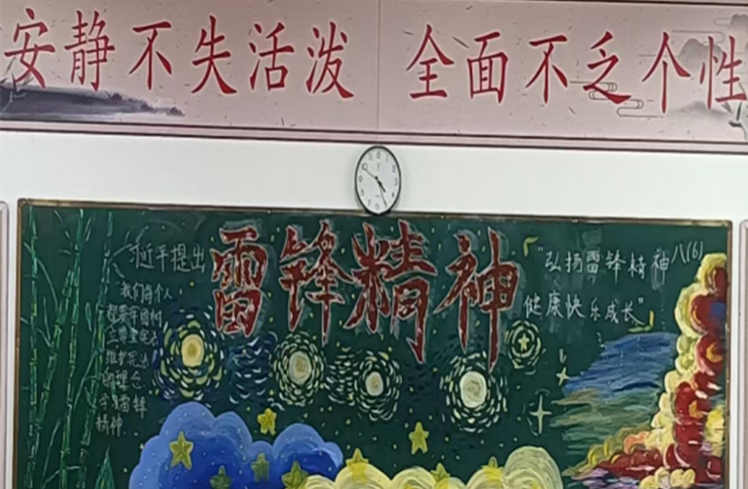 安静不失活泼 全面不乏个性
习近平提出
雷锋精神
"弘扬雷锋精神 八(6)
健康快乐成长"
我们每个人
维护宪法
学习雷锋
精神